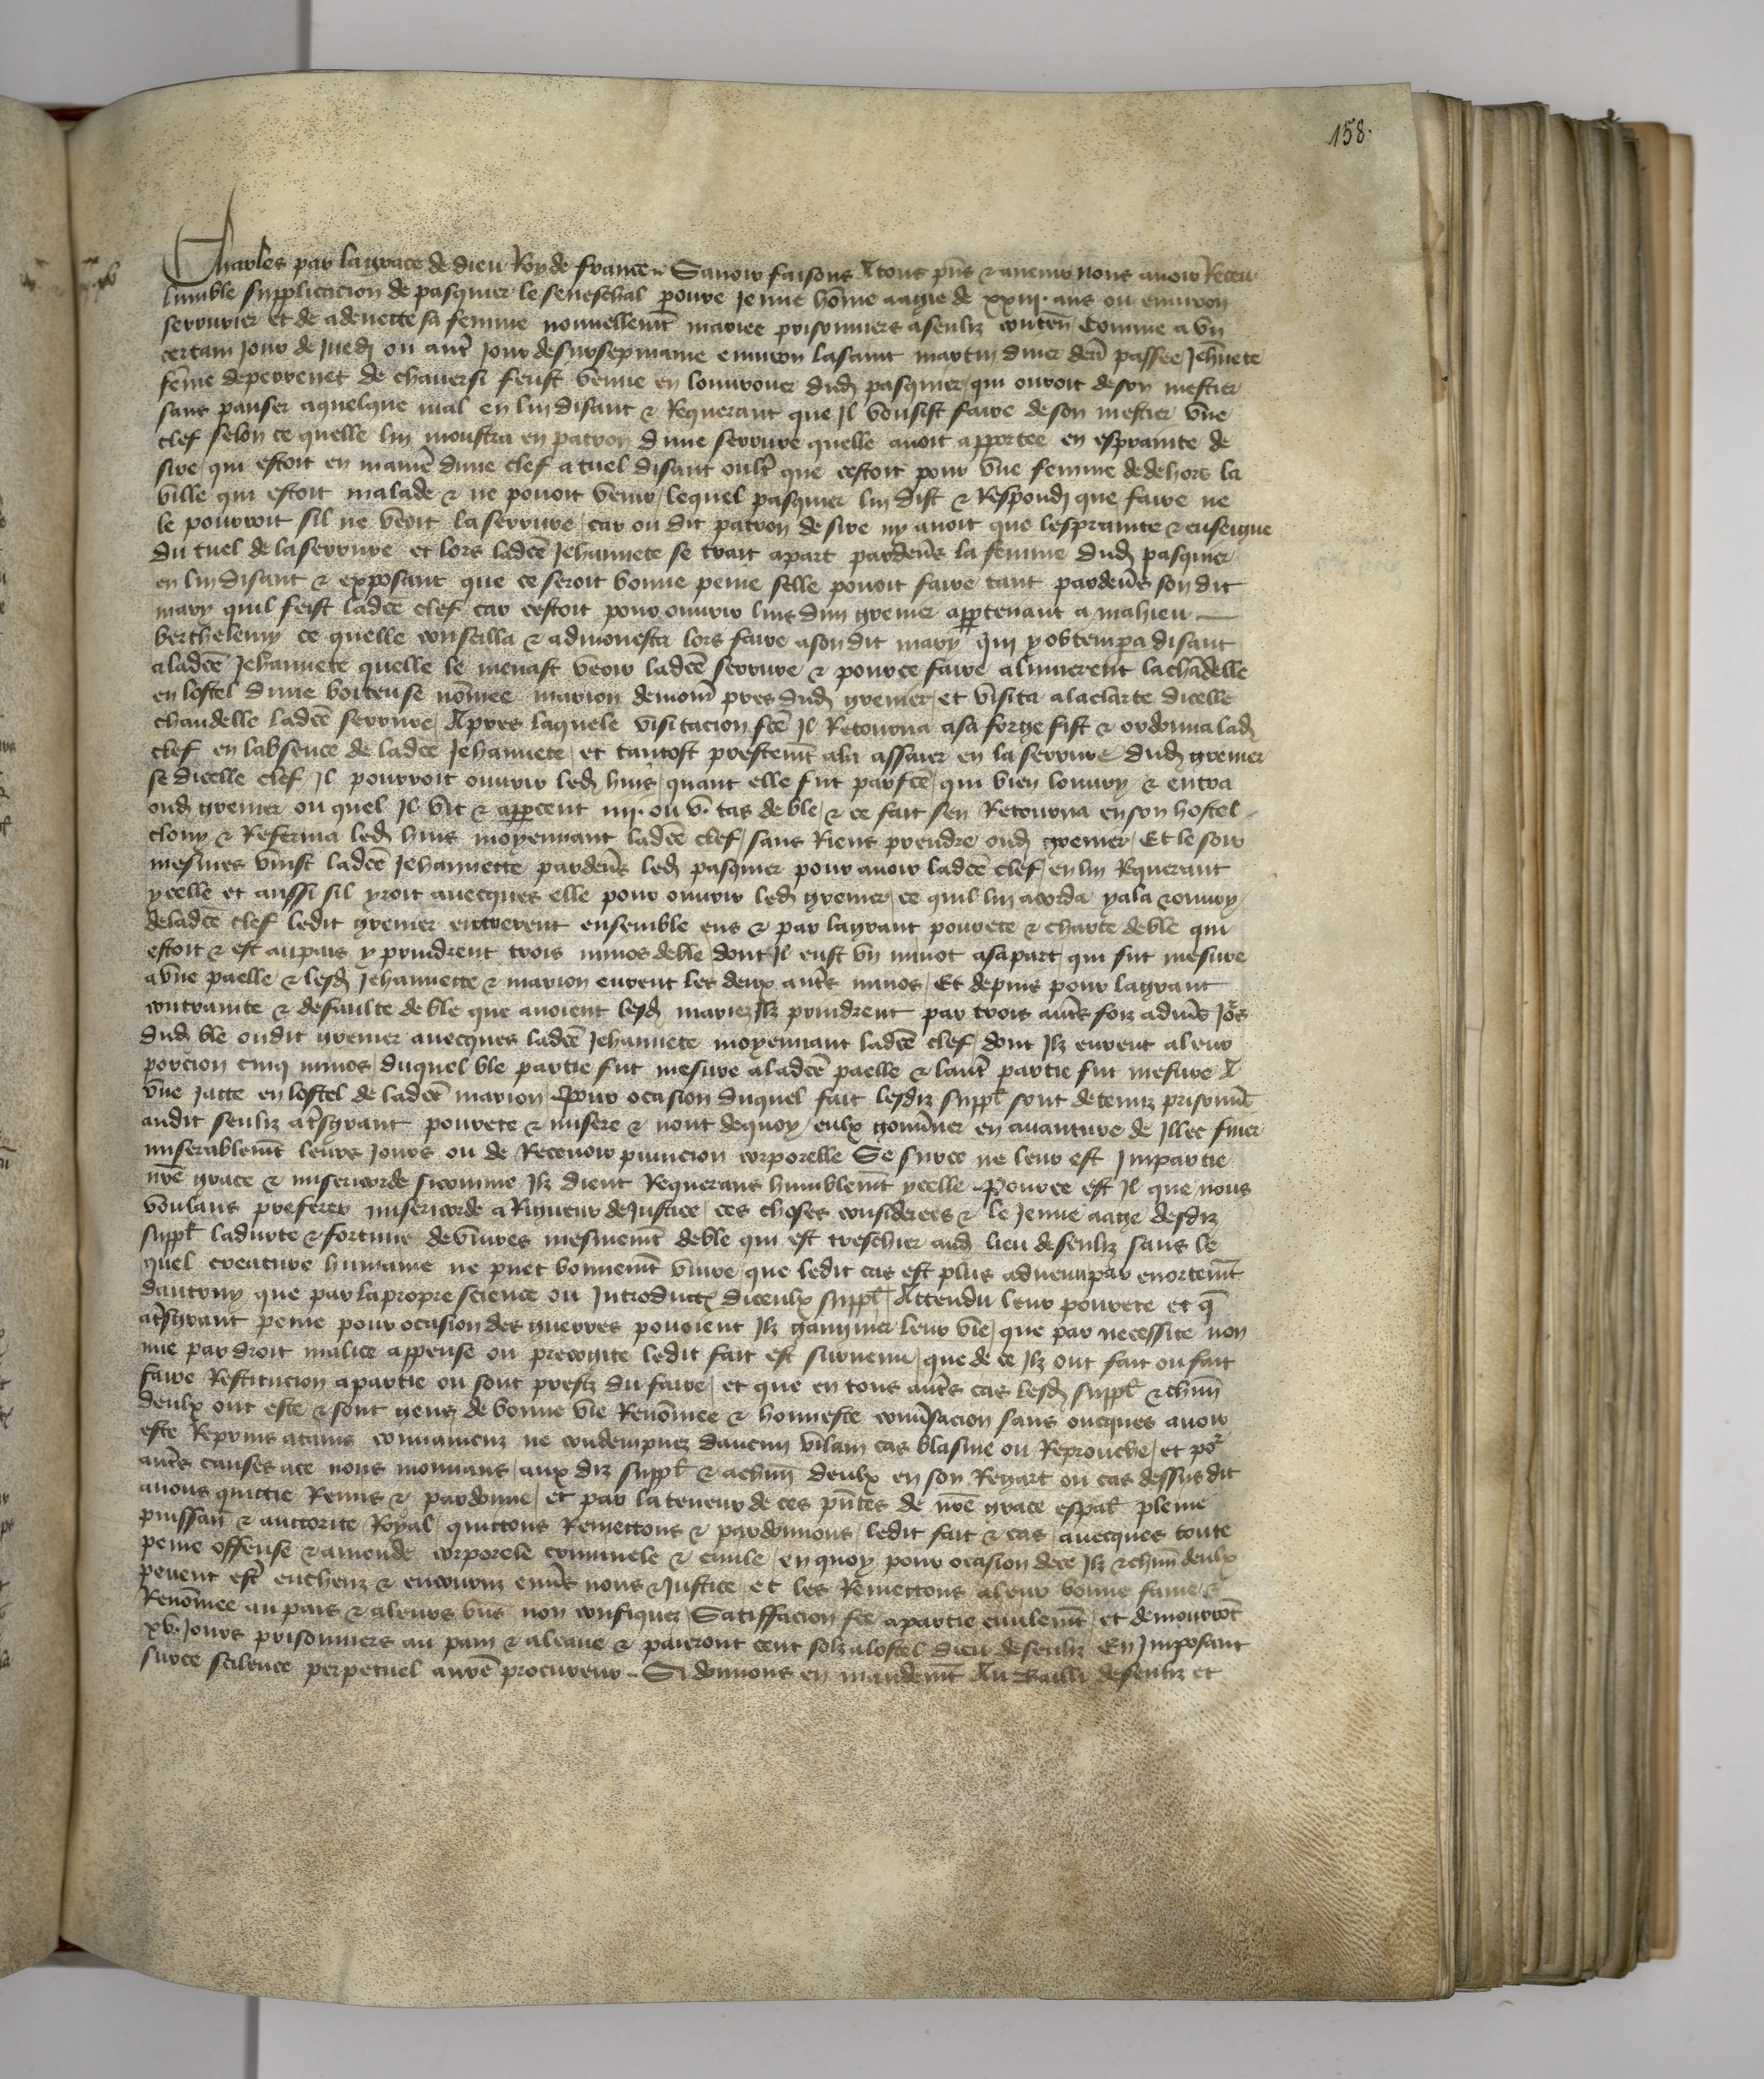 158.
Charles par la grace de dieu Roy de france. Savoir faisons A tous pns̄ & avenir nous avoir Receu
lumble supplicacion de pasquier le seneschal povre jeune hom̄e aagie de xxiij. ans ou environ
serrurier et de adenette sa femme nouvellem̄t mariee prisonniers a senliz conten̄ Comme a un
certain jour de juedj ou aut̄ jour de sursepmaine environ la saint martin diver den̄ passee jeh̄nete
fem̄e de perrenet de chaversi feust venue en louvrouer dud̄ pasquier qui ouvroit de son mestier
sans panser a quelque mal en lui disant & Requerant que il vousist faire de son mestier une
clef selon ce quelle lui moustra en patron dune serrure quelle avoit apportee en esprainte de
sire qui estoit en manīe dune clef a tuel disant oult̄ que cestoit pour une femme de dehors la
ville qui estoit malade & ne povoit venir lequel pasquier lui dist & Respondj que faire ne
le pourroit sil ne veoit la serrure car ou dit patron de sire ny avoit que lesprainte & enseigne
du tuel de la serrure et lors ladc̄e jehannete se trait apart pardevs̄ la femme dud̄ pasquier
en lui disant & exposant que ce seroit bonne peine selle povoit faire tant pardevs̄ son dit
mary quil feist ladc̄e clef car cestoit pour ouvrir luis dun grenier appartenant a mahieu
berthelemy ce quelle conseilla & admonesta lors faire a son dit mary qui y obtempa disant
a ladc̄e jehannete quelle le menast veoir ladc̄e serrure & pour ce faire alumerent la chādelle
en lostel dune boiteuse nōmee marion demoūr pres dud̄ grenier et visita a la clarte dicelle
chandelle ladc̄e serrure Apres laquele visitacion fc̄e il Retourna a sa forge fist & ordonna lad̄
clef en labsence de ladc̄e jehannete et tantost prestem̄t ala assaier en la serrure dud̄ grenier
se dicelle clef il pourroit ouvrir led̄ huis quant elle fut parfc̄e qui bien louvry & entra
oud̄ grenier ou quel il vit & appcent iiij. ou v. tas de ble & ce fait sen Retourna en son hostel
clouy & Referma led̄ huis moyennant ladc̄e clef sans Riens prendre oud̄ grenier Et le soir
mesmes vinst ladc̄e jehannette pardevs̄ led̄ pasquier pour avoir ladc̄e clef en lui Requerant
ycelle et aussi sil yroit avecques elle pour ouvrir led̄ grenier ce quil lui acorda y ala & ouvry
de ladc̄e clef ledit grenier entrerent ensemble ens & par la grant povrete & charte de ble qui
estoit & est au pais y prindrent trois minos de ble dont il eust un minot a sa part qui fut mesure
a une paelle & lesd̄ jehannette & marion eurent les deux auts̄ minos Et depuis pour la grant
contrainte & defaulte de ble que avoient lesd̄ mariez ilz prindrent par trois auts̄ foiz a divs̄ jors̄
dud̄ ble oudit grenier avecques ladc̄e jehannete moyennant ladc̄e clef dont ilz eurent a leur
porcion cinq minos duquel ble partie fut mesure a ladc̄e paelle & laut̄ partie fut mesure A
une jatte en lostel de ladc̄e marion Pour ocasion duquel fait lesdiz supp̄l sont detenuz prisonn̄ie
audit senliz a ts̄grant povrete & misere & nont de quoy eulx gouv̄ner en avanture de illec finer
miserablem̄t leurs jours ou de Recevoir punicion corporelle Se sur ce ne leur est impartie
nr̄e grace & misericorde si comme ilz dient Requerans humblem̄t ycelle Pour ce est il que nous
voulans preferer misericorde a Rigueur de justice ces choses considerees & le jeune aage desdiz
supp̄l la durte & fortune de vivres mesmem̄t de ble qui est treschier aud̄ lieu de senliz sans le
quel creature humaine ne puet bonnem̄t vivre que ledit cas est plus advenu par enortem̄t
dautruy que par la propre science ou introduct̄ diceulx supp̄l Attendu leur povrete et q̄
a ts̄grant peine pour ocasion des guerres povoient ilz gaigner leur vie que par necessite non
mie par droit malice appense ou precogite ledit fait est survenu que de ce ilz ont fait ou fait
faire Restitucion a partie ou sont prestz du faire et que en tous auts̄ cas lesd̄ supp̄l & chūn
deulx ont este & sont gens de bonne vie Renōmee & honneste convs̄acion sans oncques avoir
este Reprins atains convaincuz ne condempnez daucun vilain cas blasme ou Reprouche et por̄
auts̄ causes a ce nous mouvans aux diz supp̄l & a chūn deulx en son Regart ou cas dessus dit
avons quittie Remis & pardonne et par la teneur de ces pn̄tes de nr̄e grace espāl pleine
puissan̄ & auctorite Royal quittons Remettons & pardonnons ledit fait & cas avecques toute
peine offense & amende corporele criminele & civile en quoy pour ocasion de ce ilz & chūn deulx
pevent est̄ encheuz & encouruz envs̄ nous & justice et les Remettons a leur bonne fame &
Renōmee au pais & a leurs biēs non confisquez Satiffacion fc̄e a partie civilem̄t et demourrōt
xv. jours prisonniers au pain & a leaue & paieront cent solz a lostel dieu de senliz En imposant
sur ce scilence perpetuel a nr̄e procureur. Si donnons en mandem̄t Au Bailli de senliz et